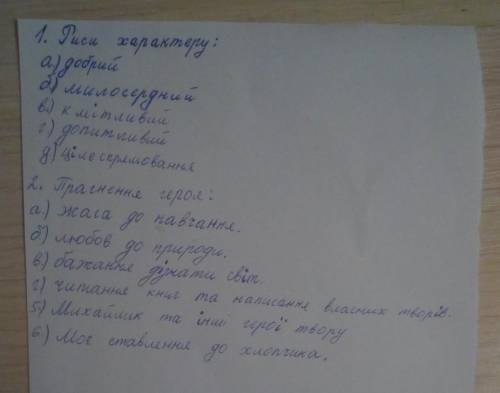 1. Риси характеру:
а) добрий
б) милосердний
в) кмітливий
г) допитливий
д) цілеспрямовання
2. Прагнення героя:
а) жага до навчання.
б) любов до природи.
в) бажання пізнати світ.
г) читання книг та написання власних творів.
5) Михайлик та інші герої твору
6) Моє ставлення до хлопчика.